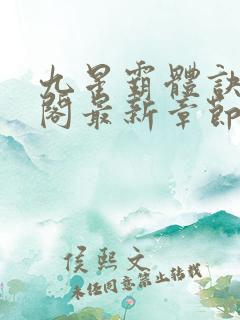 九星霸體訣
閣最新章節
侯熙文
未经同意禁止转载